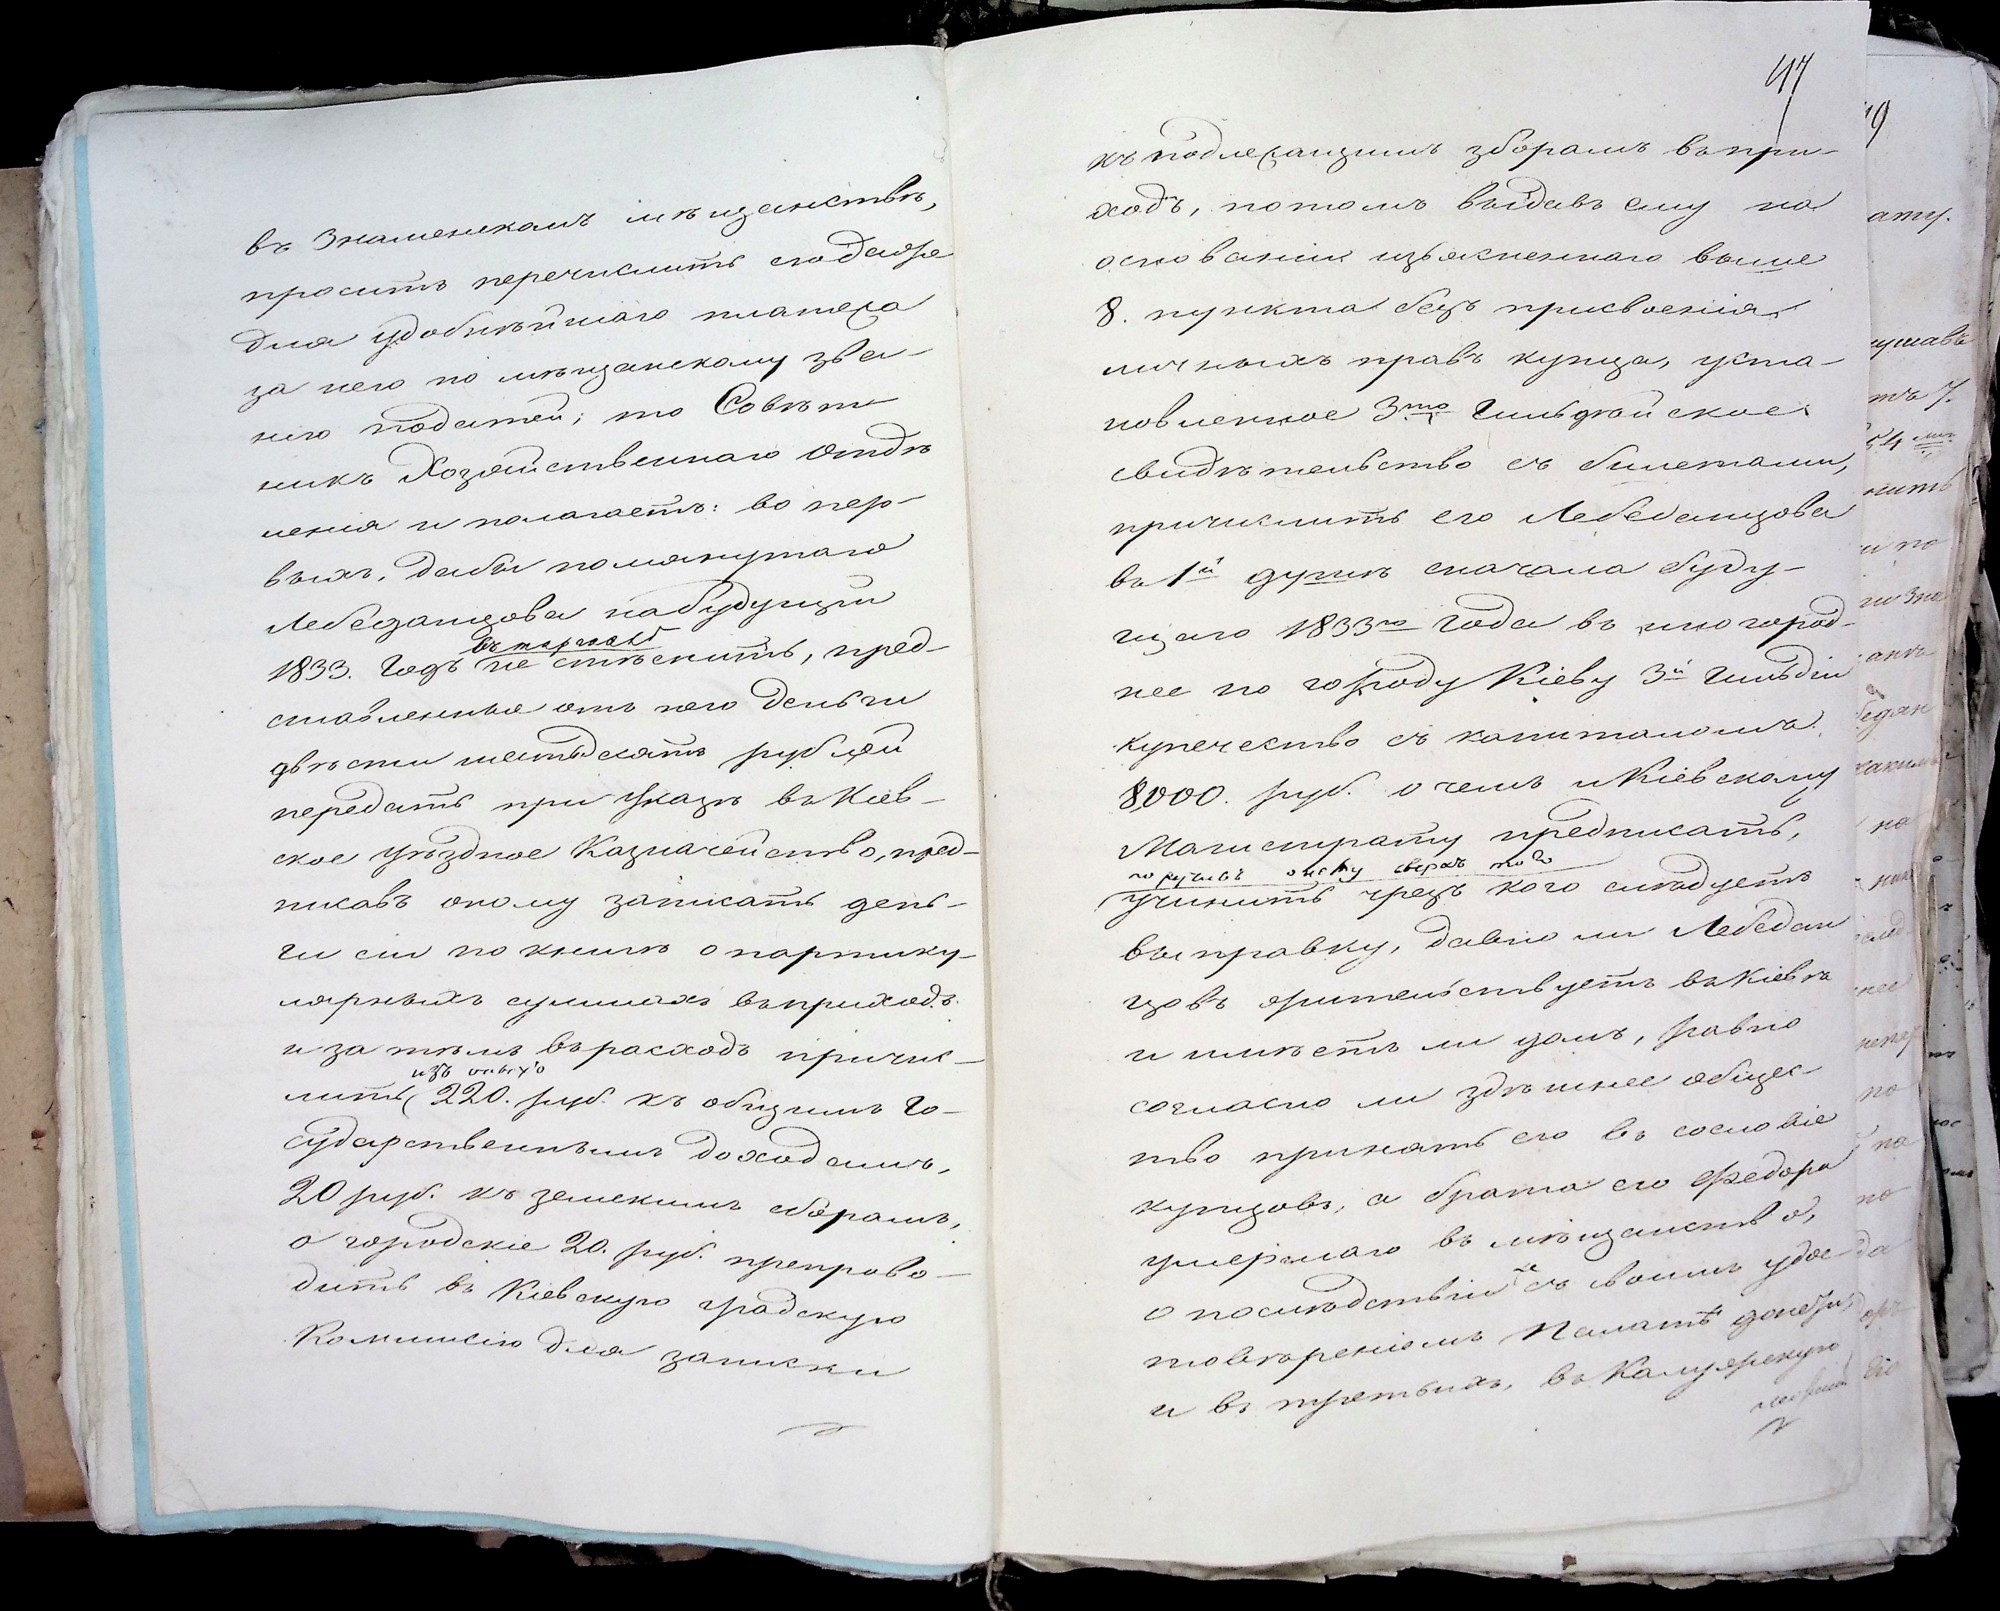 въ Знаменскомъ мѣщанствѣ,
проситъ перечислить сюда же
для удобнѣйшаго платежа
за него по мѣщанскому зва-
нію податей; то Совѣт-
никъ Хозяйственнаго Отдѣ
ленія и полагаетъ: во пер-
выхъ, дабы помянутаго
Лебедянцова на будущій
въ торговлѣ
1833. годъ не стѣснить, пред-
ставленные отъ него деньги
двѣсти шестьдесятъ рублей
передать при указѣ въ Кіев-
ское уѣздное Казначейство, пред-
писавъ оному записать день-
ги сіи по книгѣ о партику-
лярныхъ суммахъ въ приходъ
и за тѣмъ въ расходъ причис-
изъ оныхъ
лить 220. руб. къ общимъ Го-
сударственнымъ доходамъ,
20 руб. къ земскимъ сборамъ,
а городскіе 20. руб. препрово-
дить въ Кіевскую градскую
Коммисію для записки
47
къ подлежащимъ зборамъ въ при-
ходъ, потомъ выдавъ ему на
основаніи изъясненнаго выше
8. пункта безъ присвоенія
личныхъ правъ купца, уста-
новленное 3то Гильдейское
свидѣтельство съ билетами,
причислить его Лебедянцова
въ 1й душѣ сначала буду-
щаго 1833го года въ иногород-
нее по городу Кіеву 3й Гильдіи
купечество съ капиталомъ
8000. руб. о чемъ и Кіевскому
Магистрату предписать,
поручивъ оному сверхъ того
учинить чрезъ кого слѣдуетъ
выправку, давно ли Лебедян
цовъ жительствуетъ въ Кіевѣ
и имѣетъ ли домъ, равно
согласно ли здѣшнее общес-
тво принять его въ сословіе
купцовъ, а брата его Федора
умершаго въ мѣщанство,
о послѣдствіи же съ своимъ удос-
товѣреніемъ Палатѣ донести,
и въ третьихъ, въ Калужскую